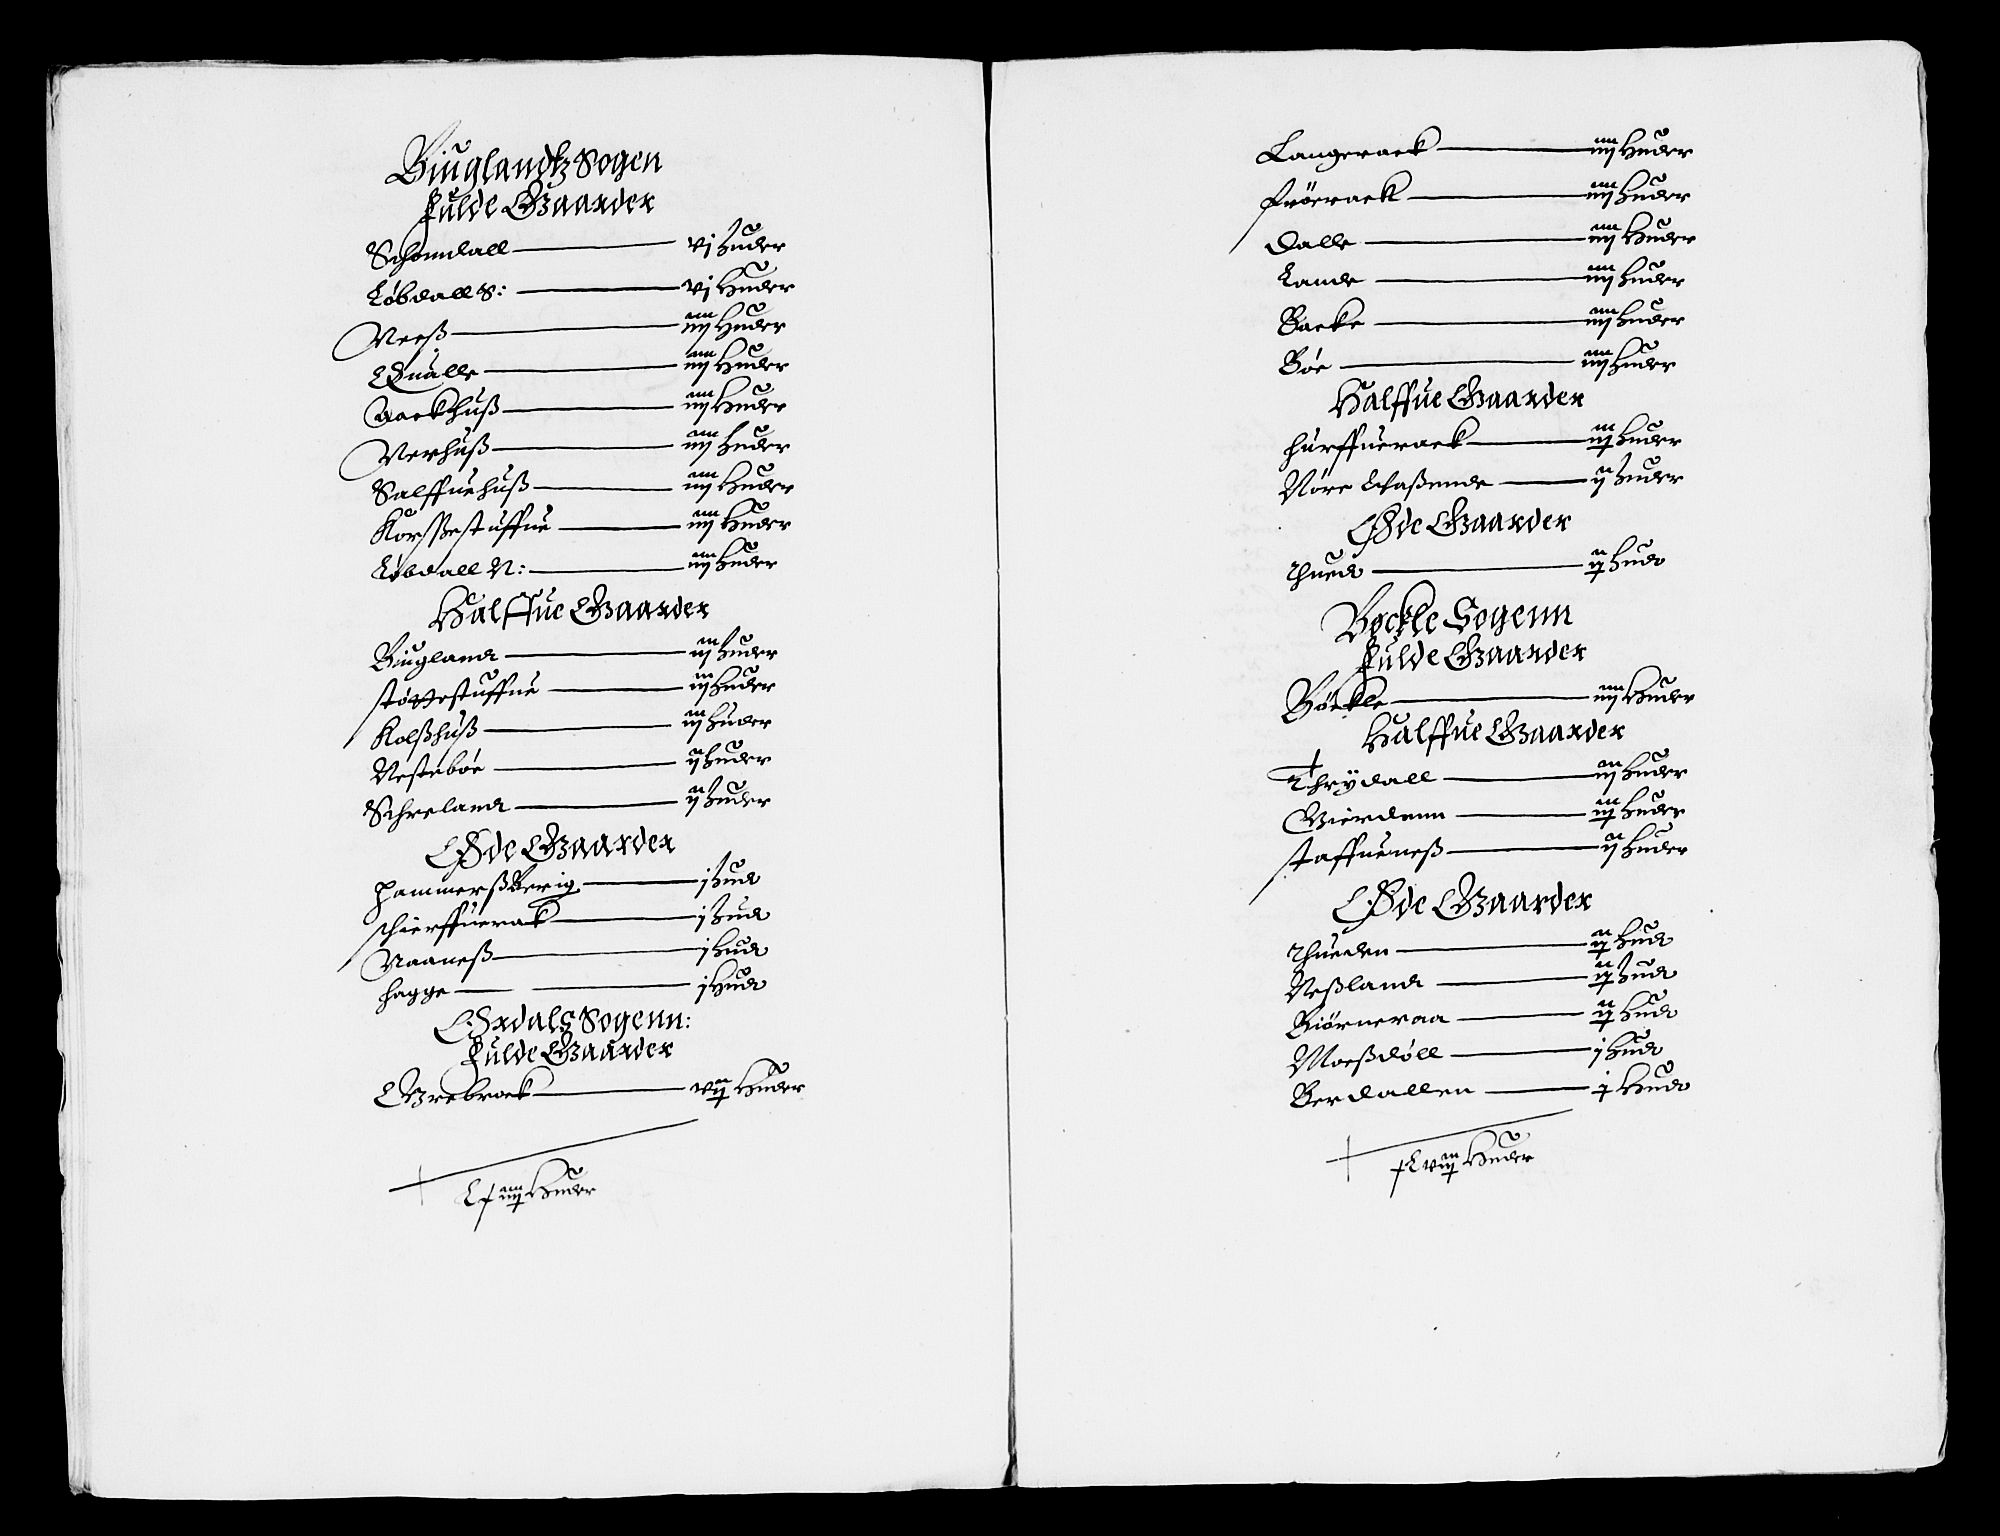 Biuglandtz Sogen
Fulde Gaarder
Schomdall — vj huder
Löbdall S: — vj Huder
Neesß — iiij Huder
Qualle — iiij Huder
Aackhuß — iiij Huder
Verhuß — iiij huder
Salffuehuß — iiij Huder
Korßestuffue — iiij Huder
Löbdall N: — iiij Huder
Halffue Gaarder
Biugland — iij huder
støttestuffue — iij Huder
Kolßhuß — iij huder
Nesteböe — ij huder
Schreland — ij huder
Øde Gaarder
hammerßberig — j hud
schierffuerak — j hud
Naaneß — j Hud
hagge — j Hud
Ordals Sogenn:
Fulde Gaarder
Grebrock — vij Huder
Huder
Langeraek — iiij Huder
fröeraek — iiij Huder
Dalle — iiij Huder
Lande — iiij huder
Backe — iiij huder
Böe — iiij huder
Halffue Gaarder
hurffueraek — iij huder
Nöre Waßende — ij huder
Øde Gaarder
thued — ij hud
Bøckle Sogenn
Fulde Gaarder
Böckle — iiij Huder
Halffue Gaarder
Thrydall — iij Huder
Gierdenn — iij huder
staffueneß — ij huder
Øde Gaarder
thueden — ij hud
Neßland — ij hud
Biörneraa — ij Hud
Moeßdöll — j Hud
Berdallen — j Hud
Lviij Huder